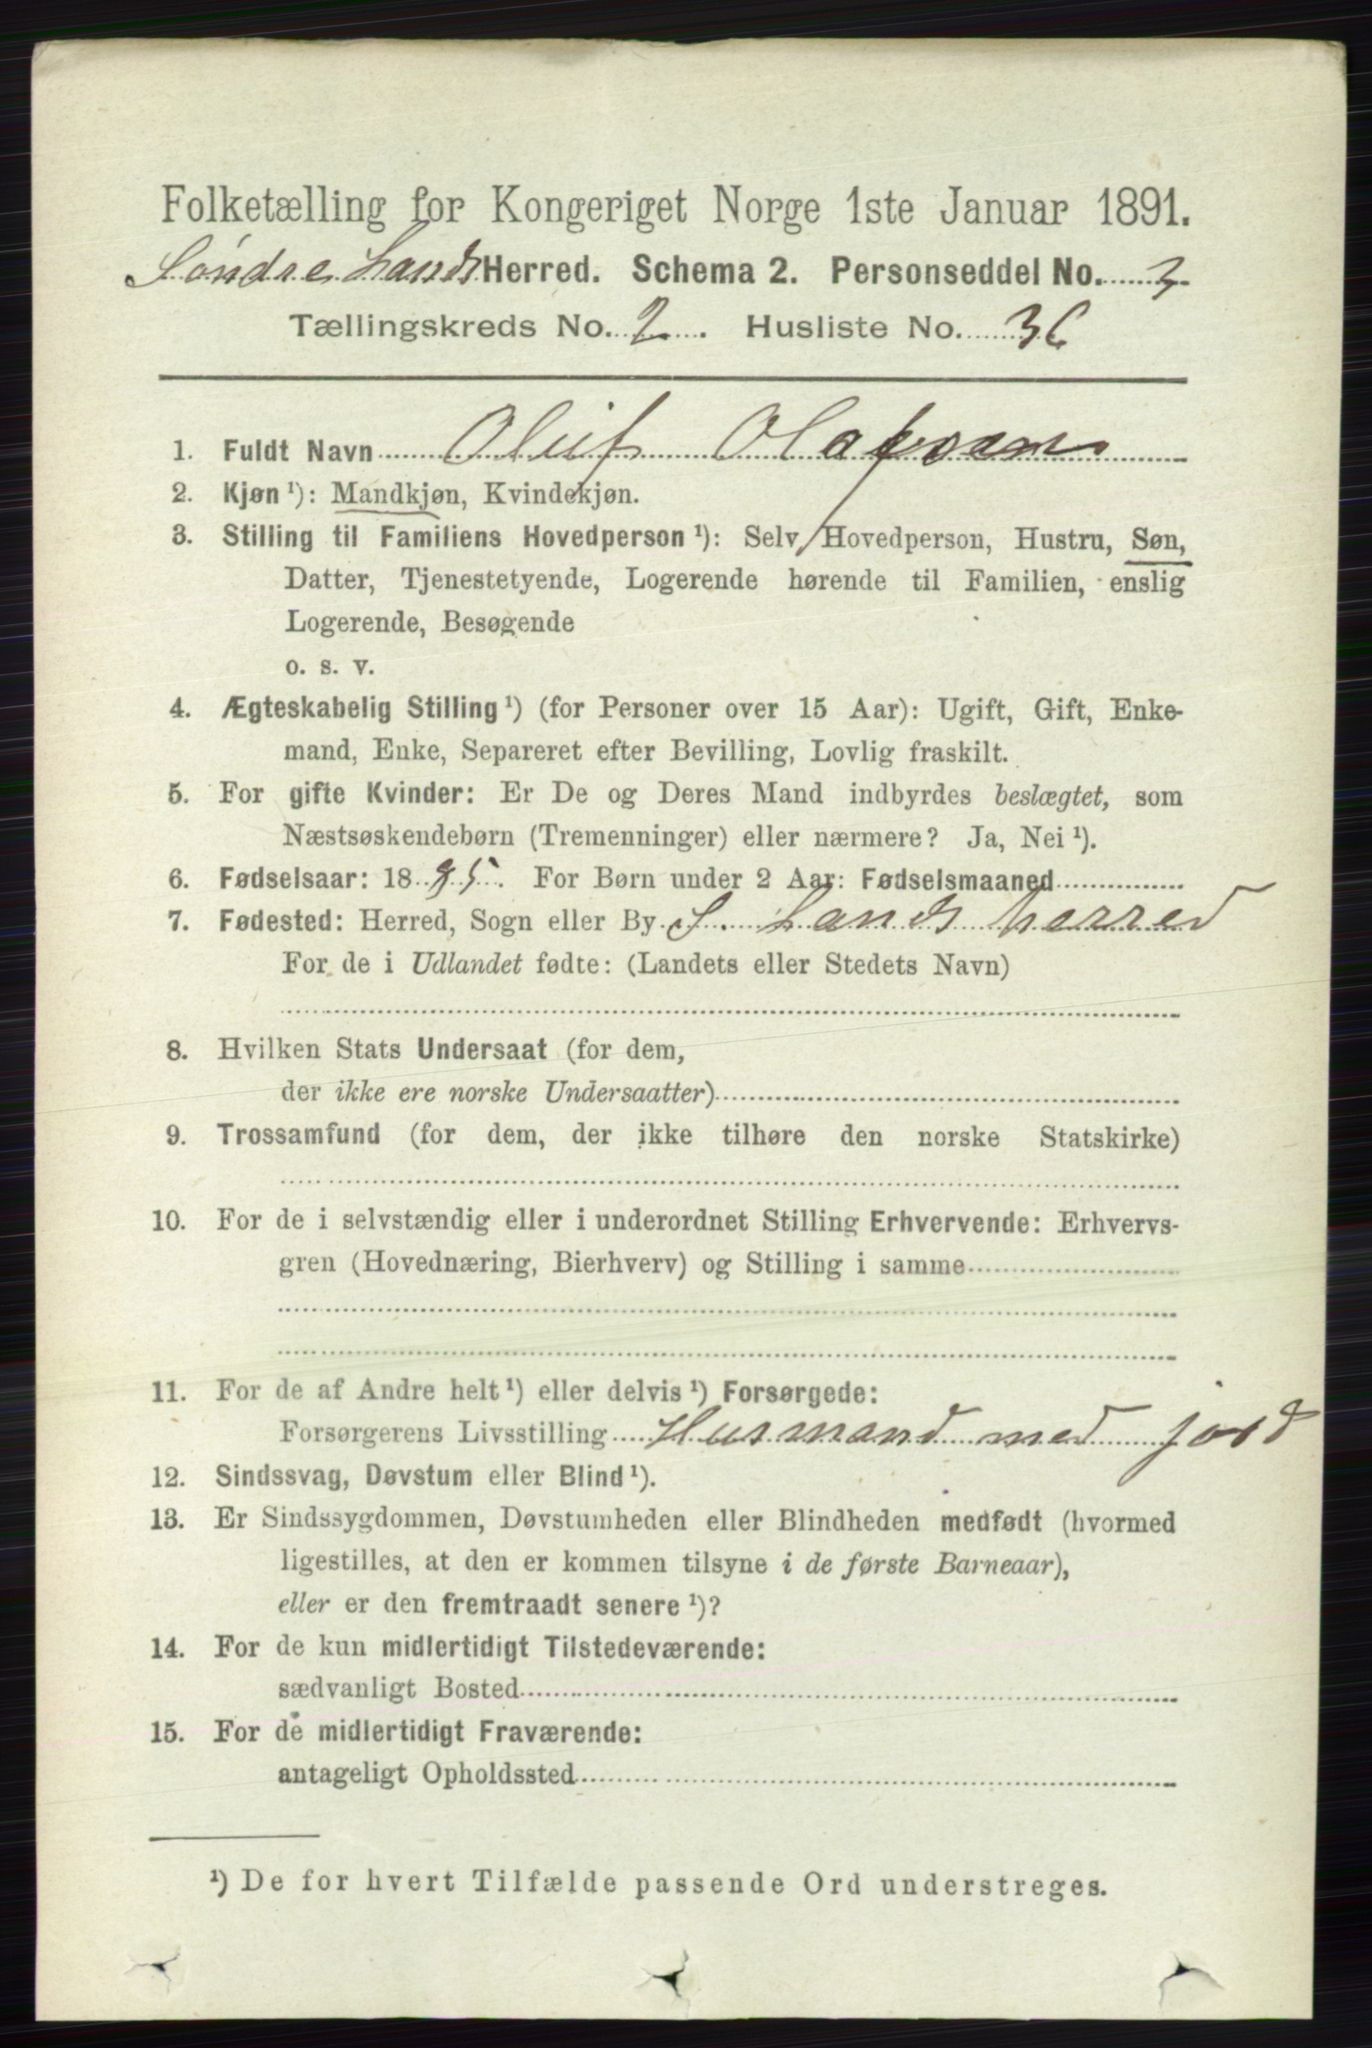 Folketælling for Kongeriget Norge 1ste Januar 1891.
Søndre Lands Herred. Schema 2. Personseddel No. 3
Tællingskreds No. 2. Husliste No. 36
1. Fuldt Navn Oluf Olafsen
2. Kjøn ¹): Mandkjøn, Kvindekjøn.
3. Stilling til Familiens Hovedperson ¹): Selv Hovedperson, Hustru, Søn,
Datter, Tjenestetyende, Logerende hørende til Familien, enslig
Logerende, Besøgende
o. s. v.
4. Ægteskabelig Stilling ¹) (for Personer over 15 Aar): Ugift, Gift, Enke-
mand, Enke, Separeret efter Bevilling, Lovlig fraskilt.
5. For gifte Kvinder: Er De og Deres Mand indbyrdes beslægtet, som
Næstsøskendebørn (Tremenninger) eller nærmere? Ja, Nei ¹).
6. Fødselsaar: 1885. For Børn under 2 Aar: Fødselsmaaned
7. Fødested: Herred, Sogn eller By S. Lands herred
For de i Udlandet fødte: (Landets eller Stedets Navn)
8. Hvilken Stats Undersaat (for dem,
der ikke ere norske Undersaatter)
9. Trossamfund (for dem, der ikke tilhøre den norske Statskirke)
10. For de i selvstændig eller i underordnet Stilling Erhvervende: Erhvervs-
gren (Hovednæring, Bierhverv) og Stilling i samme
11. For de af Andre helt ¹) eller delvis ¹) Forsørgede:
Forsørgerens Livsstilling Husmand med jord
12. Sindssvag, Døvstum eller Blind ¹).
13. Er Sindssygdommen, Døvstumheden eller Blindheden medfødt (hvormed
ligestilles, at den er kommen tilsyne i de første Barneaar),
eller er den fremtraadt senere ¹)?
14. For de kun midlertidigt Tilstedeværende:
sædvanligt Bosted
15. For de midlertidigt Fraværende:
antageligt Opholdssted
¹) De for hvert Tilfælde passende Ord understreges.